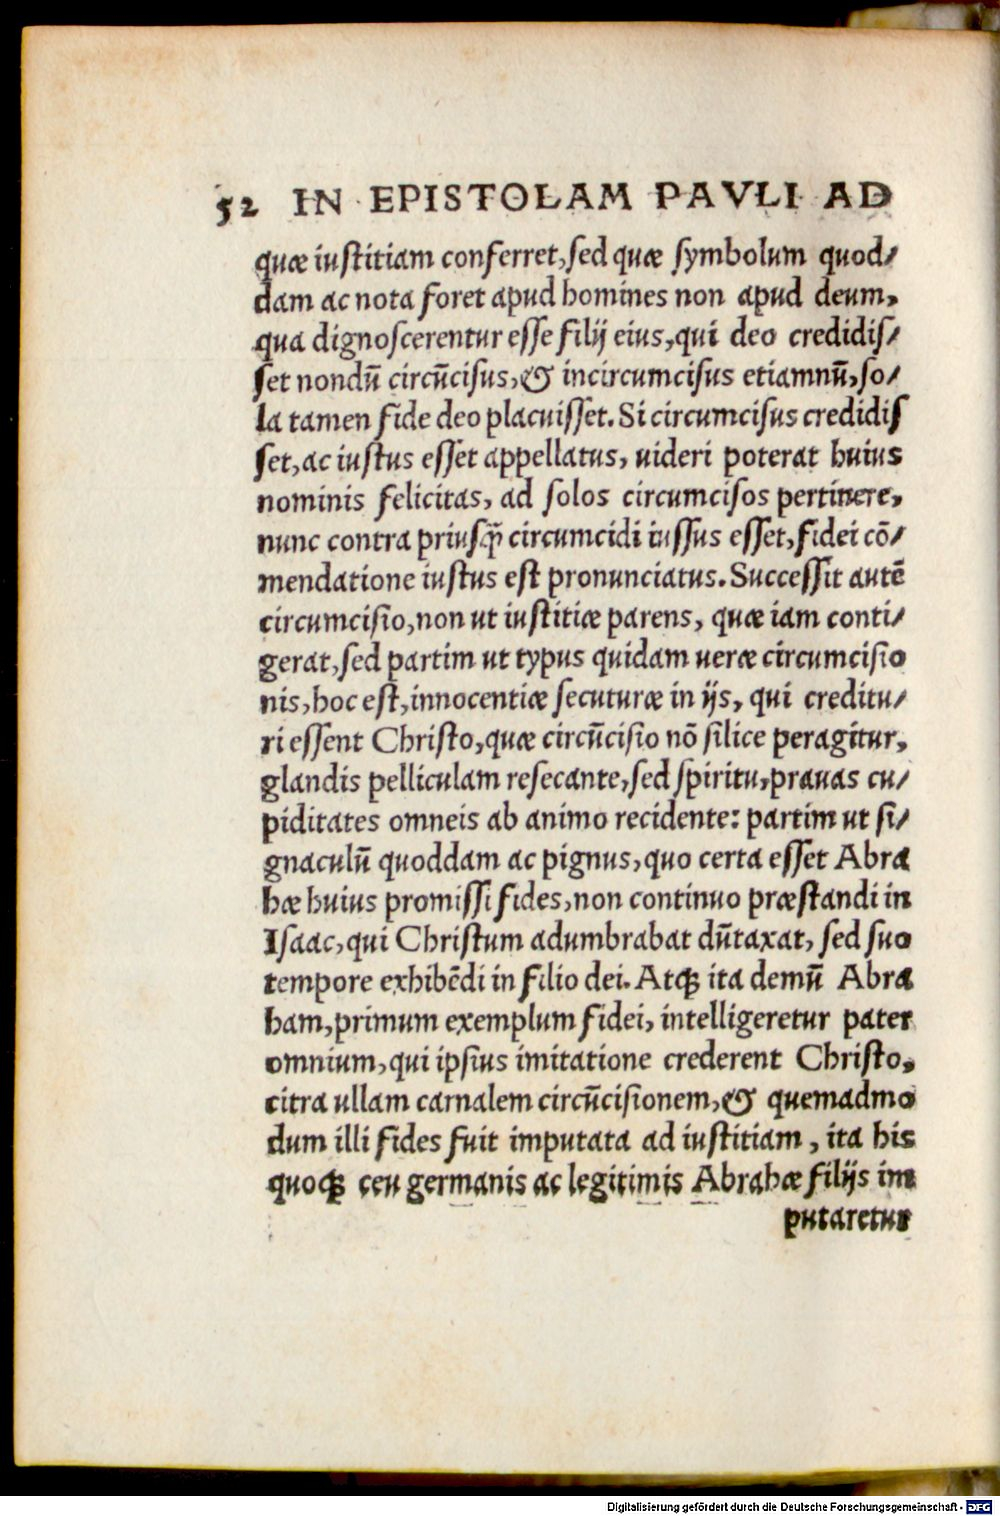 52 IN EPISTOLAM PAVLI AD
quæ iustitiam conferret, sed quæ symbolum quod/
dam ac nota foret apud homines non apud deum,
qua dignoscerentur esse filij eius, qui deo credidis/
set nondū circūcisus, & incircumcisus etiamnū, so/
la tamen fide deo placuisset. Si circumcisus credidis
set, ac iustus esset appellatus, uideri poterat huius
nominis felicitas, ad solos circumcisos pertinere,
nunc contra priusꝗ̃ circumcidi iussus esset, fidei cō/
mendatione iustus est pronunciatus. Successit autē
circumcisio, non ut iustitiæ parens, quæ iam conti/
gerat, sed partim ut typus quidam ueræ circumcisio
nis, hoc est, innocentiæ secuturæ in ijs, qui creditu/
ri essent Christo, quæ circūcisio nō silice peragitur,
glandis pelliculam resecante, sed spiritu, prauas cu/
piditates omneis ab animo recidente: partim ut si/
gnaculū quoddam ac pignus, quo certa esset Abra
hæ huius promissi fides, non continuo præstandi in
Isaac, qui Christum adumbrabat dūtaxat, sed suo
tempore exhibēdi in filio dei. Atqꝫ ita demū Abra
ham, primum exemplum fidei, intelligeretur pater
omnium, qui ipsius imitatione crederent Christo,
citra ullam carnalem circūcisionem, & quemadmo
dum illi fides fuit imputata ad iustitiam, ita his
quoqꝫ ceu germanis ac legitimis Abrahæ filijs im
putaretur
Digitalisierung gefördert durch die Deutsche Forschungsgemeinschaft - DFG